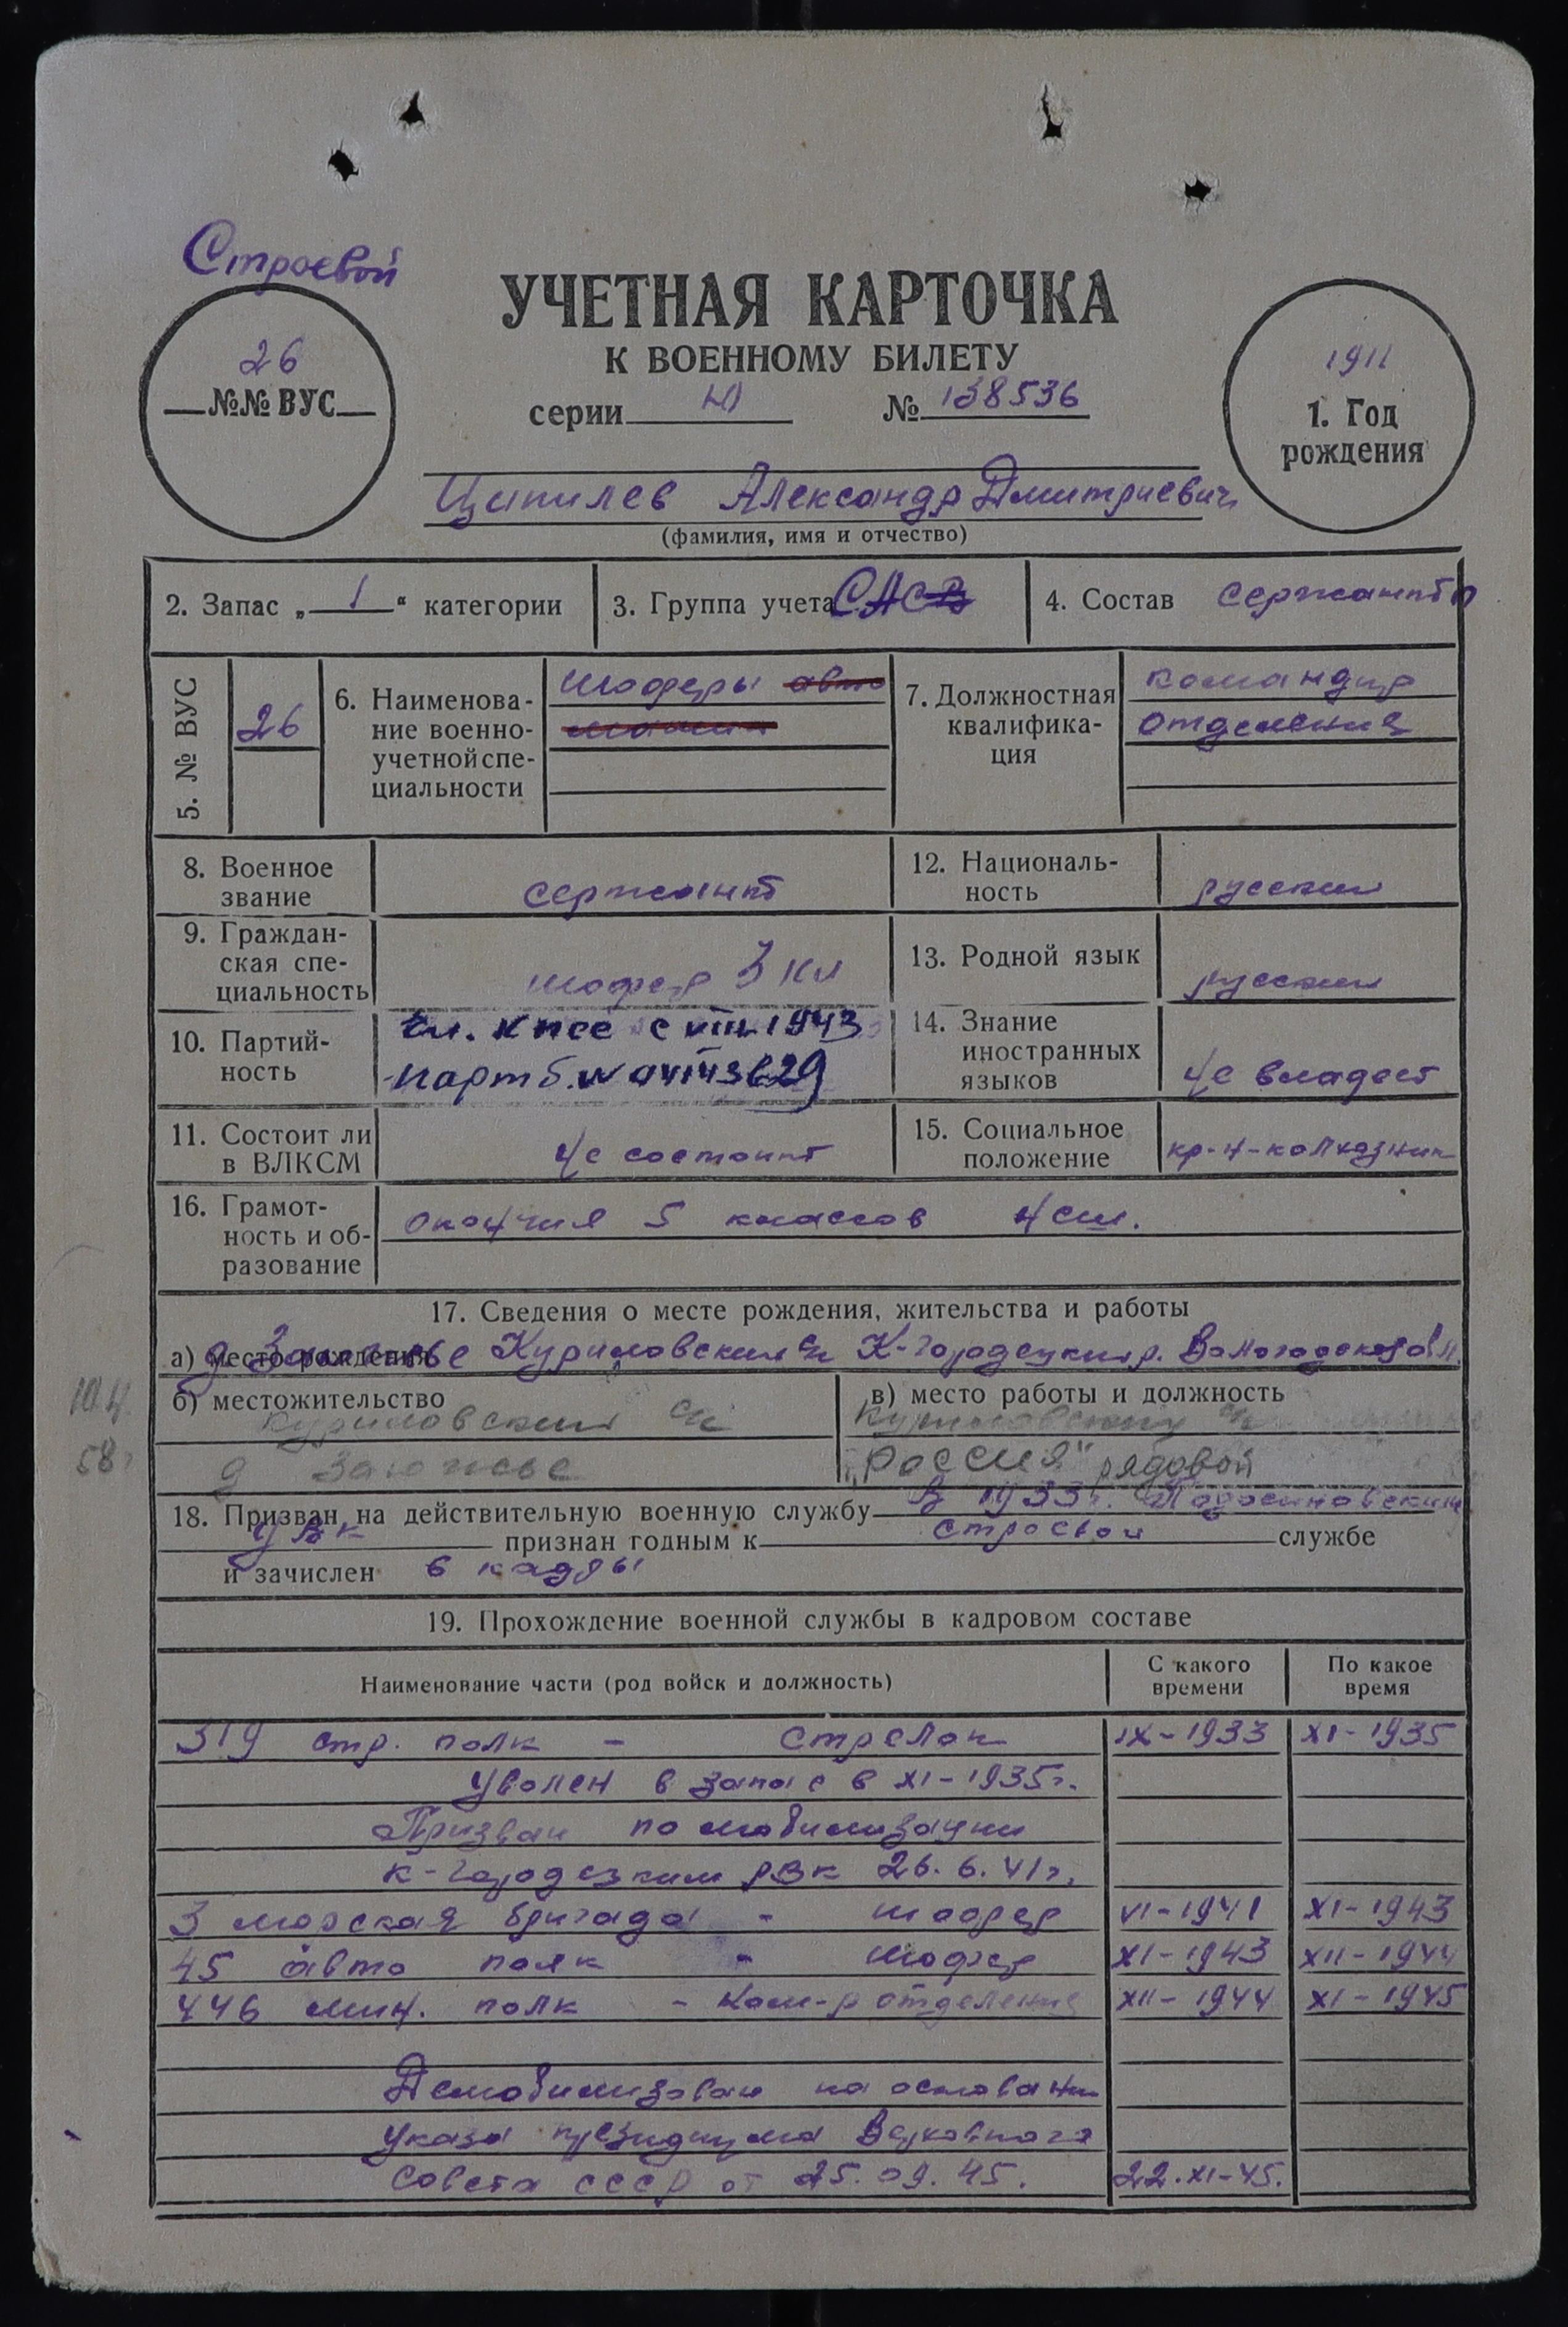 Строевой
УЧЕТНАЯ КАРТОЧКА
К ВОЕННОМУ БИЛЕТУ
серии Ю № 138536
26
№№ ВУС
1911
1. Год
рождения
Ципилев Александр Дмитриевич
(фамилия, имя и отчество)
2. Запас „ 1 “ категории
3. Группа учета САСВ
4. Состав сержанты
5. № ВУС
26
6. Наименова-
ние военно-
учетной спе-
циальности
шоферы авто
машин
7. Должностная
квалифика-
ция
командир
отделения
8. Военное
звание
сержант
12. Националь-
ность
русский
9. Граждан-
ская спе-
циальность
шофер 3 кл
13. Родной язык
русский
10. Партий-
ность
чл. КПСС с VIII-1943
парт б. №
14. Знание
иностранных
языков
Не владеет
11. Состоит ли
в ВЛКСМ
Не состоит
15. Социальное
положение
кр-н-колхозник
16. Грамот-
ность и об-
разование
окончил 5 классов нсш.
17. Сведения о месте рождения, жительства и работы
а) место рождения д. Заюжье Куриловский с/с К-Городецкий р. Вологодской обл.
10.4.
58г
б) местожительство
Куриловский с/с
д Заюжье
в) место работы и должность
Куриловский с/с
„Россия“ рядовой
18. Призван на действительную военную службу В 1933г. Подосиновским
РВК признан годным к строевой службе
и зачислен в кадры
19. Прохождение военной службы в кадровом составе
Наименование части (род войск и должность)
С какого
времени
По какое
время
319 стр. полк - стрелок IX-1933 XI-1935
Уволен в запас в XI-1935г.
Призван по мобилизации
К-Городецким РВК 26.6.41г.
3 морская бригада - шофер VI-1941 XI-1943
45 авто полк - шофер XI-1943 XII-1944
446 мин. полк - Ком-р отделения XII-1944 XI-1945
Демобилизован на основании
Указа президиума Верховного
Совета СССР от 25.09.45. 22.XI-45.